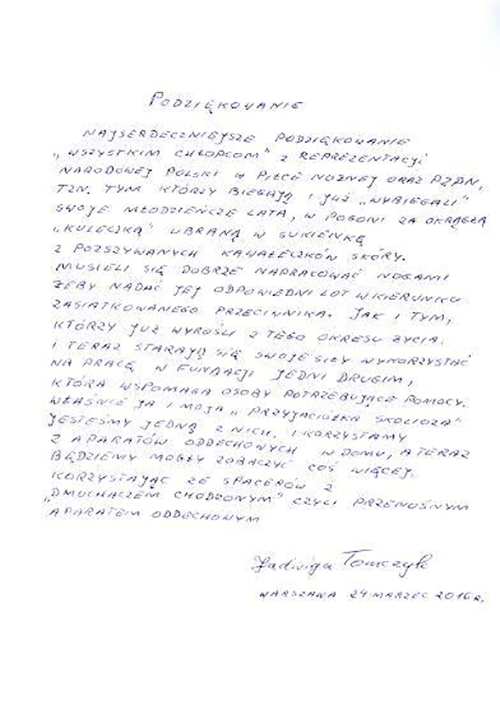 PODZIĘKOWANIE
NAJSERDECZNIEJSZE PODZIĘKOWANIE
„WSZYSTKIM CHŁOPCOM" Z REPREZENTACJI
NARODOWEJ POLSKI W PIŁCE NOŻNEJ ORAZ PZPN,
TZN. TYM KTÓRZY BIEGAJĄ I JUŻ „WYBIEGALI"
SWOJE MŁODZIEŃCZE LATA, W POGONI ZA OKRĄGŁĄ
„KULECZKĄ" UBRANĄ W SUKIENKĘ
Z POZSZYWANYCH KAWAŁECZKÓW SKÓRY.
MUSIELI SIĘ DOBRZE NAPRACOWAĆ NOGAMI
ŻEBY NADAĆ JEJ ODPOWIEDNI LOT W KIERUNKU
ZASIATKOWANEGO PRZECIWNIKA. JAK I TYM,
KTÓRZY JUŻ WYROŚLI Z TEGO OKRESU ŻYCIA.
I TERAZ STARAJĄ SIĘ SWOJE SIŁY WYKORZYSTAĆ
NA PRACĘ W FUNDACJI JEDNI DRUGIM,
KTÓRA WSPOMAGA OSOBY POTRZEBUJĄCE POMOCY.
WŁAŚNIE JA I MOJA „PRZYJACIÓŁKA SKOLIOZA"
JESTEŚMY JEDNĄ Z NICH. I KORZYSTAMY
Z APARATÓW ODDECHOWYCH W DOMU, A TERAZ
BĘDZIEMY MOGŁY ZOBACZYĆ COŚ WIĘCEJ.
KORZYSTAJĄC ZE SPACERÓW Z
„DMUCHACZEM CHODZONYM" CZYLI PRZENOŚNYM
APARATEM ODDECHOWYM
Jadwiga Tomczyk
WARSZAWA 24 MARZEC 2016 r.